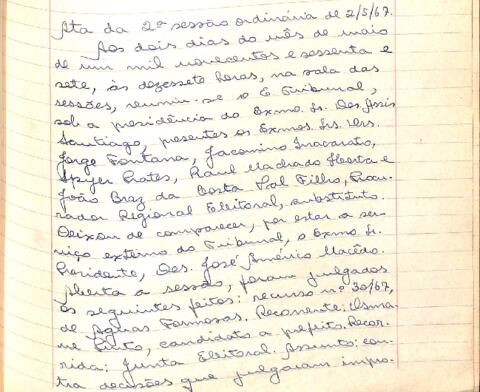 Ata da 2ª sessão ordinária de 2/5/67.
Aos dois dias do mês de maio
de um mil novecentos e sessenta e
sete, às dezessete horas, na sala das
sessões, reuniu-se o E. Tribunal,
sob a presidência do Exmo. Sr. Des. Assis
Santiago, presentes os Exmos. Srs. Drs.
Jorge Fontana, Jacomino Inacarato,
Spyer Prates, Raul Machado Horta e
João Braz da Costa Val Filho, Procu-
rador Regional Eleitoral, substituto.
Deixou de comparecer, por estar a ser-
viço externo do Tribunal, o Exmo. Sr.
Presidente, Des. José Américo Macêdo.
Aberta a sessão, foram julgados
os seguintes feitos: recurso nº 30/67,
de Águas Formosas. Recorrente: Osma-
ne Pinto, candidato a prefeito. Recor-
rida: Junta Eleitoral. Assunto: con-
tra decisões que julgaram impro-